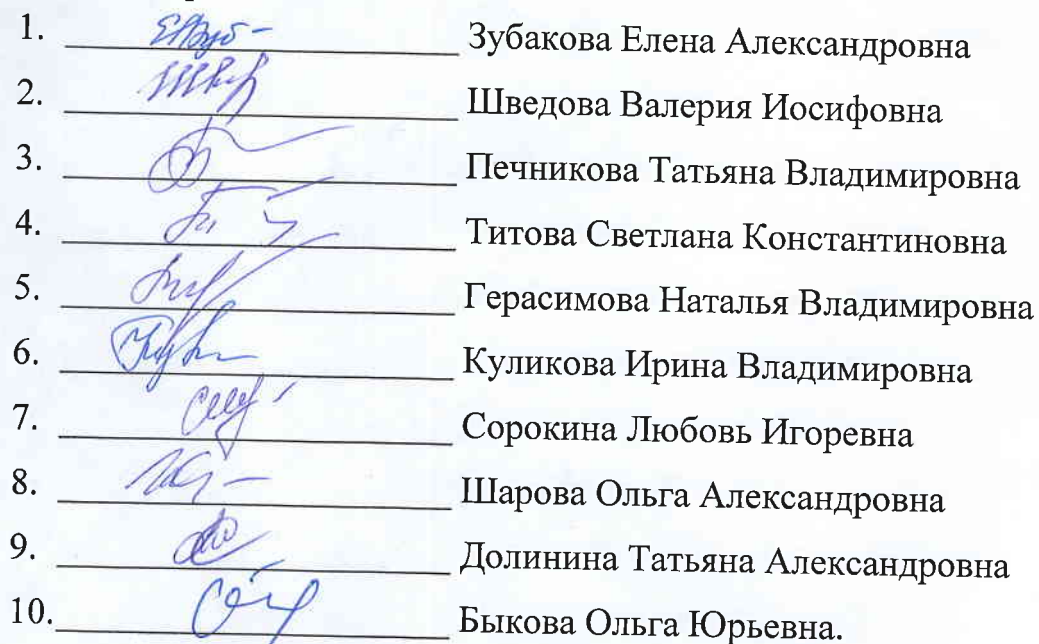 1. Зубакова Елена Александровна
2. Шведова Валерия Иосифовна
3. Печникова Татьяна Владимировна
4. Титова Светлана Константиновна
5. Герасимова Наталья Владимировна
6. Куликова Ирина Владимировна
7. Сорокина Любовь Игоревна
8. Шарова Ольга Александровна
9. Долинина Татьяна Александровна
10. Быкова Ольга Юрьевна.